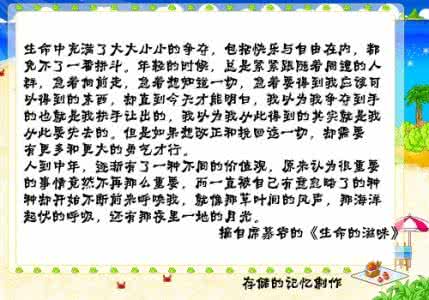 生命中充满了大大小小的争夺,包括快乐与自由在内,都
免不了一番拼斗。年轻的时候,总是紧紧跟随着周遭的人
群,急着向前走,急着想知道一切,急着要得到我应该可
以得到的东西,却直到今天才能明白,我以为我争夺到手
的也就是我拱手让出的,我以为我从此得到的其实就是我
从此要失去的。但是如果想改正和挽回这一切,却需要
有更多和更大的勇气才行。
人到中年,逐渐有了一种不同的价值观,原来认为很重要
的事情竟然不再那么重要,而一直被自己有意忽略了的种
种却开始不断前来呼唤我,就像那草叶间的风声,那海洋
起伏的呼吸,还有那夜里一地的月光。
摘自席慕容的《生命的滋味》
存储的记忆制作